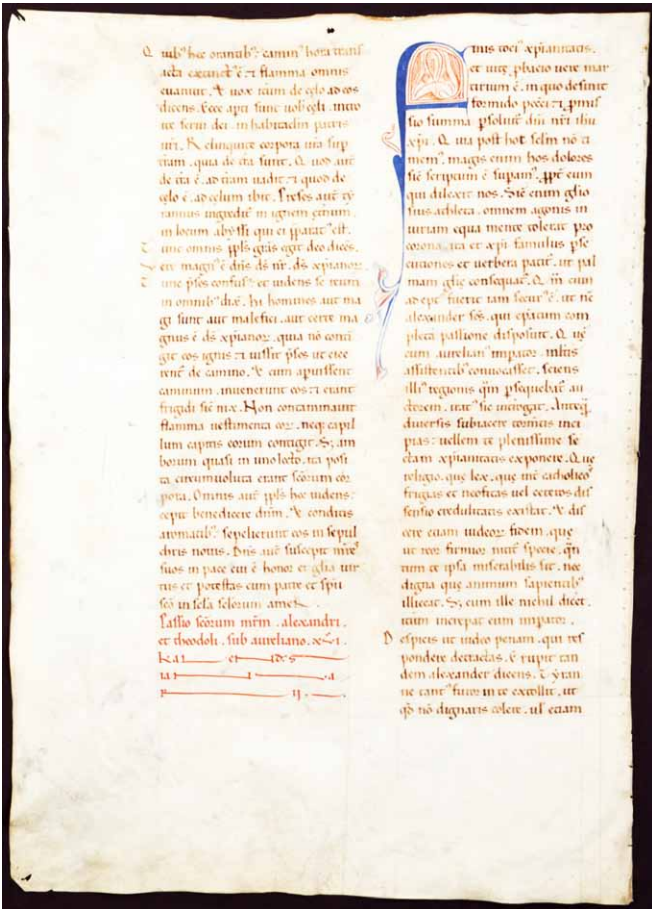 Q uib' hec orantib'. camin' hora trans
acta extinct' ē. ⁊ flamma omnis
euanuit. & uox icum de celo ad eos
dicens. Ecce apti sunt uob celi. intro
ite serui dei. in habitaclm patris
uri. R elinquite corpora ura sup
tram. quia de tra sunt. Q uod aut
de tra ē. ad tram uadit. ⁊ quod de
celo ē. ad celum ibit. Preses aut ty
rannus ingredit' in ignem eternum.
in locum abyssi qui ei pparat' est.
T unc omnis ppls gras egit deo dices.
Vere magn' ē dns ds nr. ds xpianoꝝ.
T unc pses confus'. et uidens se uctum
in omnib' dix. Hi homines aut ma
gi sunt aut malefici. aut certe ma
gnus ē ds xpianoꝝ. quia nō conti
git eos ignis. ⁊ iussit pses ut eice
rent de camino. & cum apuissent
caminum. inuenerunt eos. ⁊ erant
frigidi sic nix. Non contaminauit
flamma uestimenta eoꝝ. neq; capil
lum capitis eorum contigit. S; am
borum quasi in uno lecto. ita posi
ta circumuoluta erant scorum cor
pora. Omnis aut ppls hec uidens.
cepit benedicere dnm. & conditis
aromatib'. sepelierunt eos in sepul
chris nouis. Dns aut suscepit mres
suos in pace cui ē honor et glia uir
tus et potestas cum patre et spu
sco in scla sclorum amen.
Passio scorum mrm. alexandri.
et theodoli. sub aureliano. xvi.
kal et id s
ia a
r ii
Finis toci' xpianitatis.
et uite pbacio uere mar
tirium ē. in quo desinit
formido peccti. ⁊ pmis
sio summa psoluit' dni nri ihu
xpi. Q uia post hoc sclm nō ti
mem'. magis enim hos dolores
sic scriptum ē supam'. ppt eum
qui dilexit nos. Sic enim glio
sius athleta. omnem agonis in
iuriam equa mente tolerat pro
corona. ita et xpi famulus pse
cutiones et uerbera patit'. ut pal
mam glie consequat'. Q m cum
ad ept' fuerit iam secur' ē. ut
alexander scs. qui epatum com
pleta passione disposuit. Q ue
cum aurelian' impator. mltis
assistentib' conuocasset. sciens
illi' regionis psequebat' au
ctorem. ita sic interrogat. Anteq
diuersis subiacere tortis inci
pias. uellem te plenissime se
ctam xpianitatis exponere. Q ue
religio. que lex. que int catholicos
frigas et neofitas uel ceteros dis
sensio credulitatis existat. & dis
cere etiam uideoꝝ fidem. que
ut reor firmior nitit' specie. qn
tum te ipsa miserabilis sit. nec
digna que animum sapientib'
illiceat. S; cum ille nichil dicet.
itum increpat eum impator.
D espicis ut uideo penam. qui res
pondere detractas. E rupit tan
dem alexander dicens. T yran
ne tant' furor in te extollit. ut
qd nō dignaris colere. ul etiam